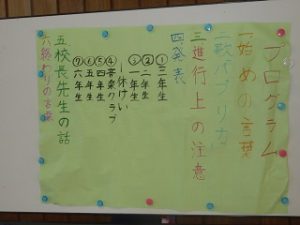 プログラム
一始めの言葉
二歌パプリカ
三進行上の注意
四発表
①三年生
②二年生
③一年生
ー休けいー
④音楽クラブ
⑤四年生
⑥五年生
⑦六年生
五校長先生の話
六終わりの言葉